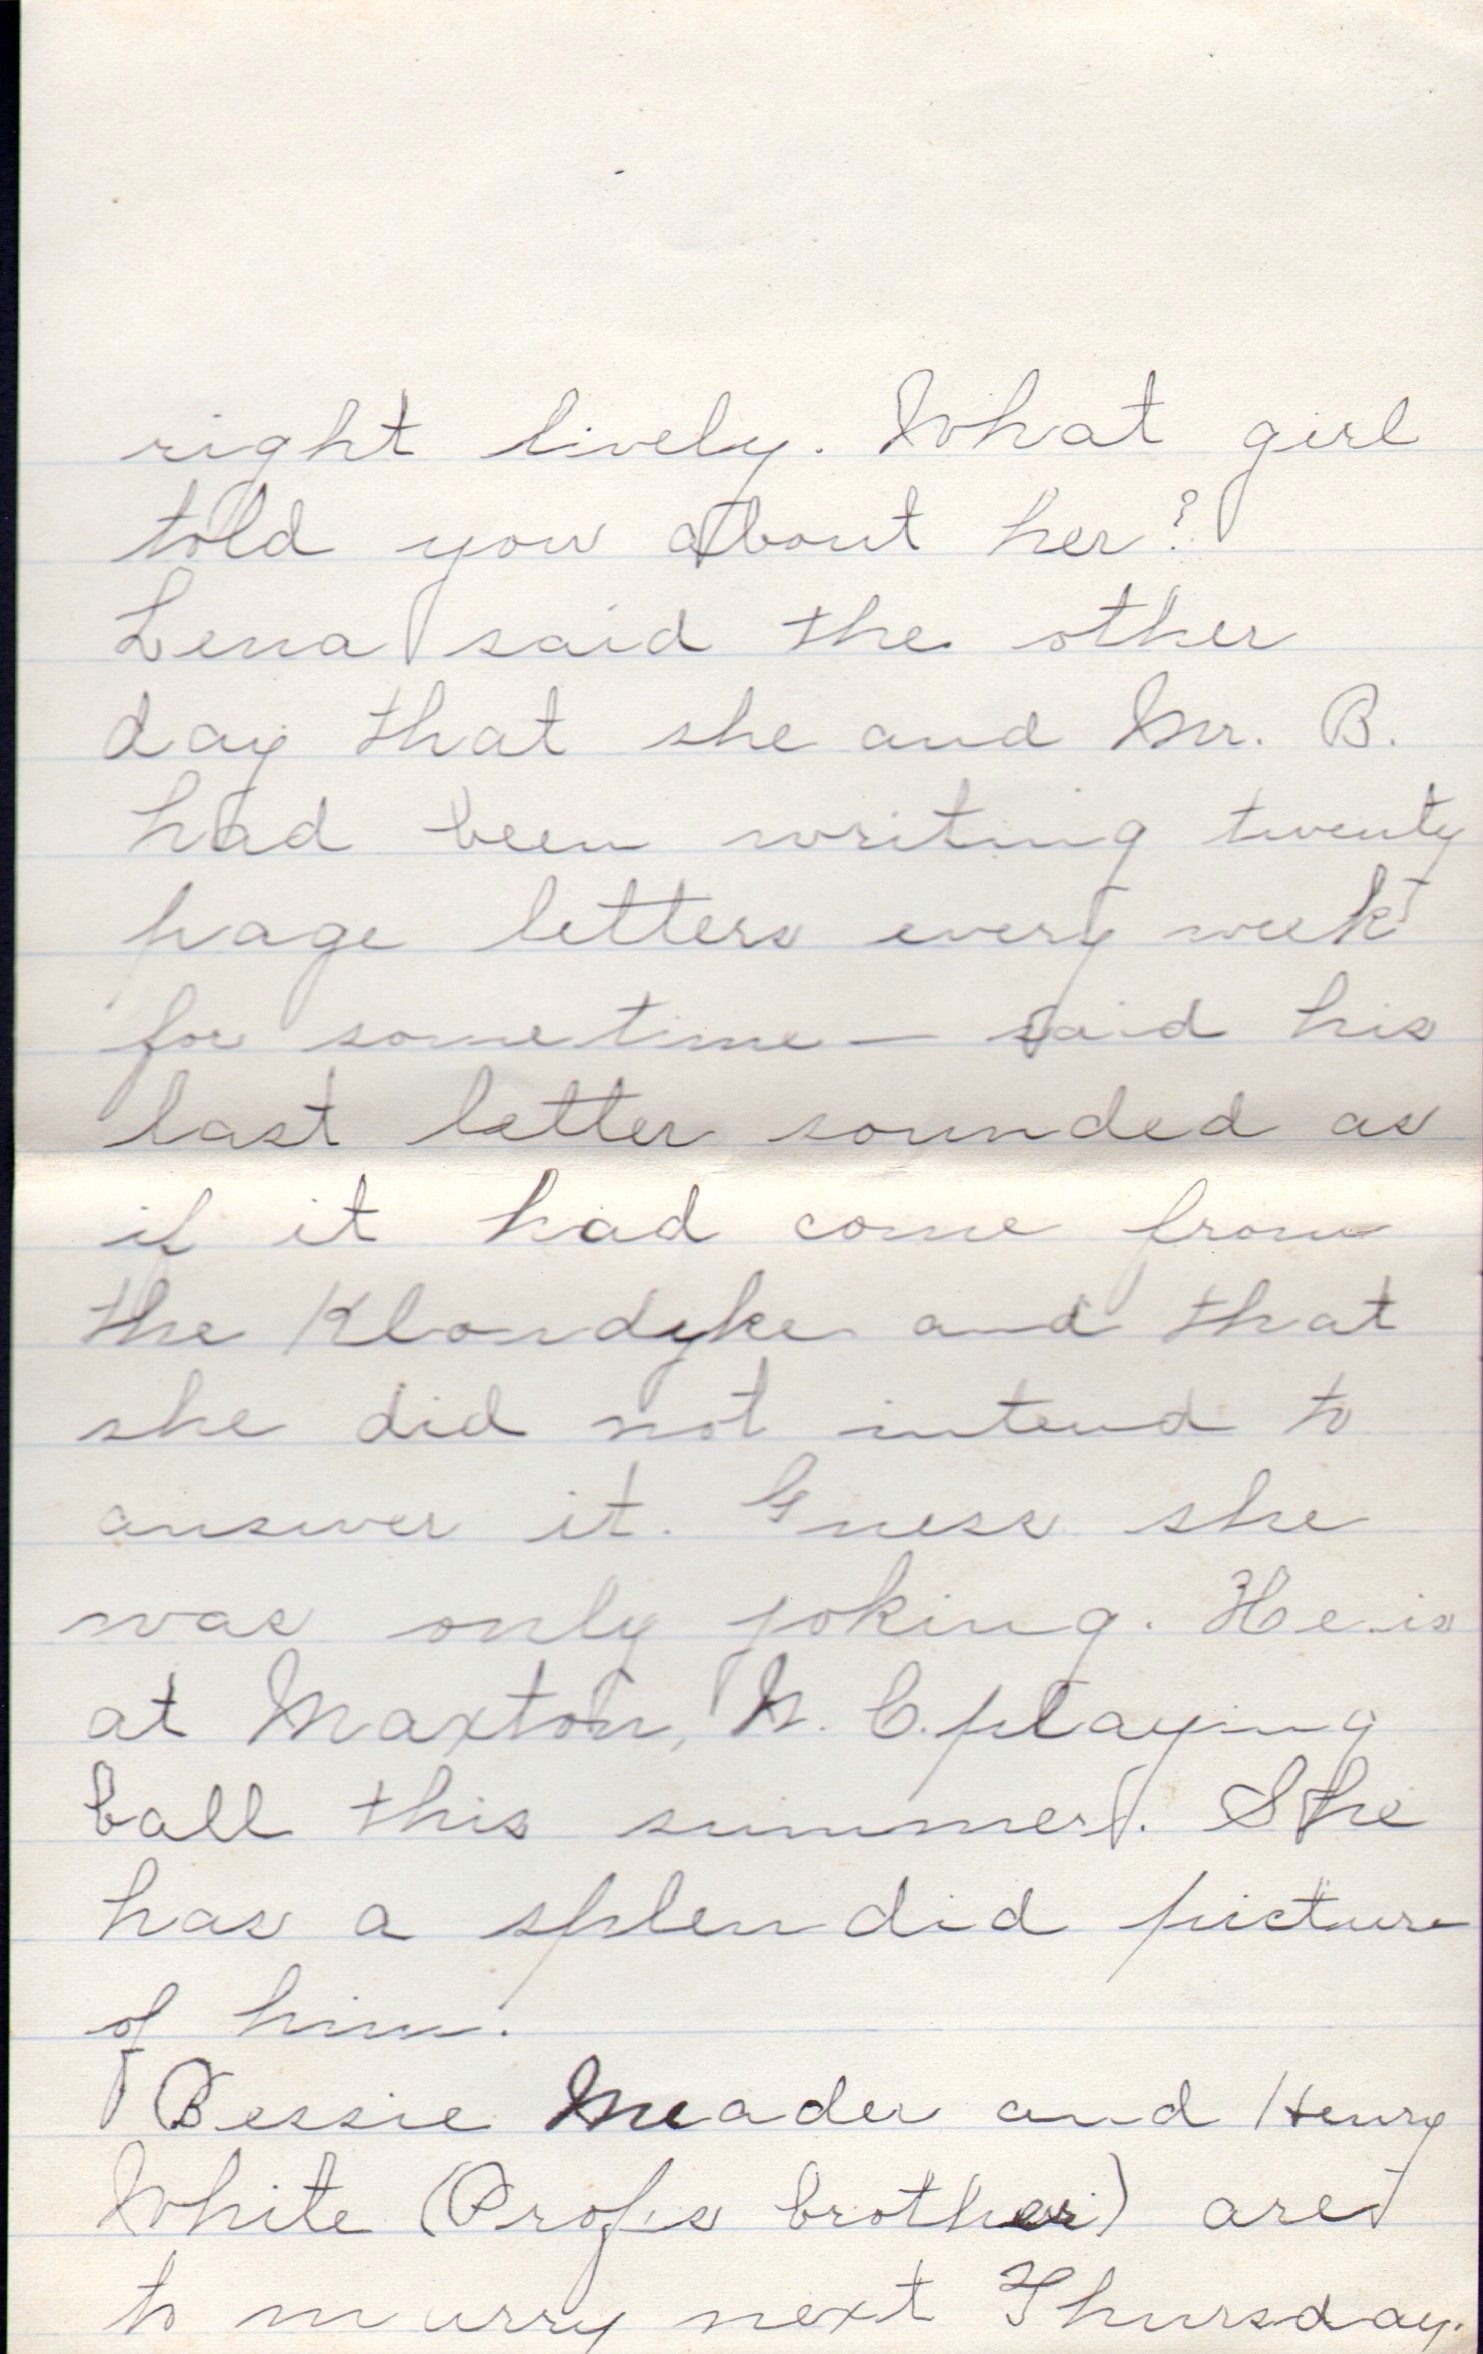 right lively. What girl
told you about her?
Lena said the other
day that she and Mr. B.
had been writing twenty
page letters every week
for sometime — said his
last letter sounded as
if it had come from
the Klondyke and that
she did not intend to
answer it. Guess she
was only joking. He is
at Maxton, N. C. playing
ball this summer. She
has a splendid picture
of him.
Bessie Meader and Henry
White (Prof's brother) are
to marry next Thursday.